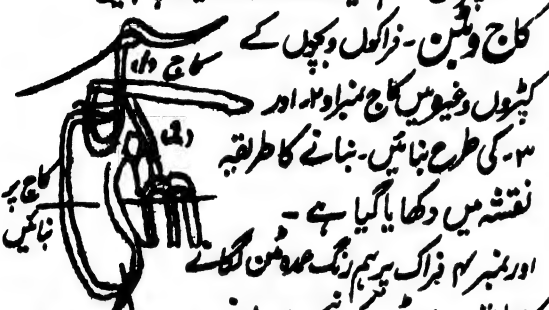 کاج وٹبن - فراکوں و بچوں کے
کپڑوں وغیرہ میں کاج نمبر ۱ و ۲ - اور
۳ - کی طرح بنائیں - بنانے کا طریقہ
نقشہ میں دکھایا گیا ہے -
اور نمبر ۴ فراک پر ہم رنگ عمدہ بٹن لگانے
کاج (۱)
(۲)
کاج پر
بنائیں